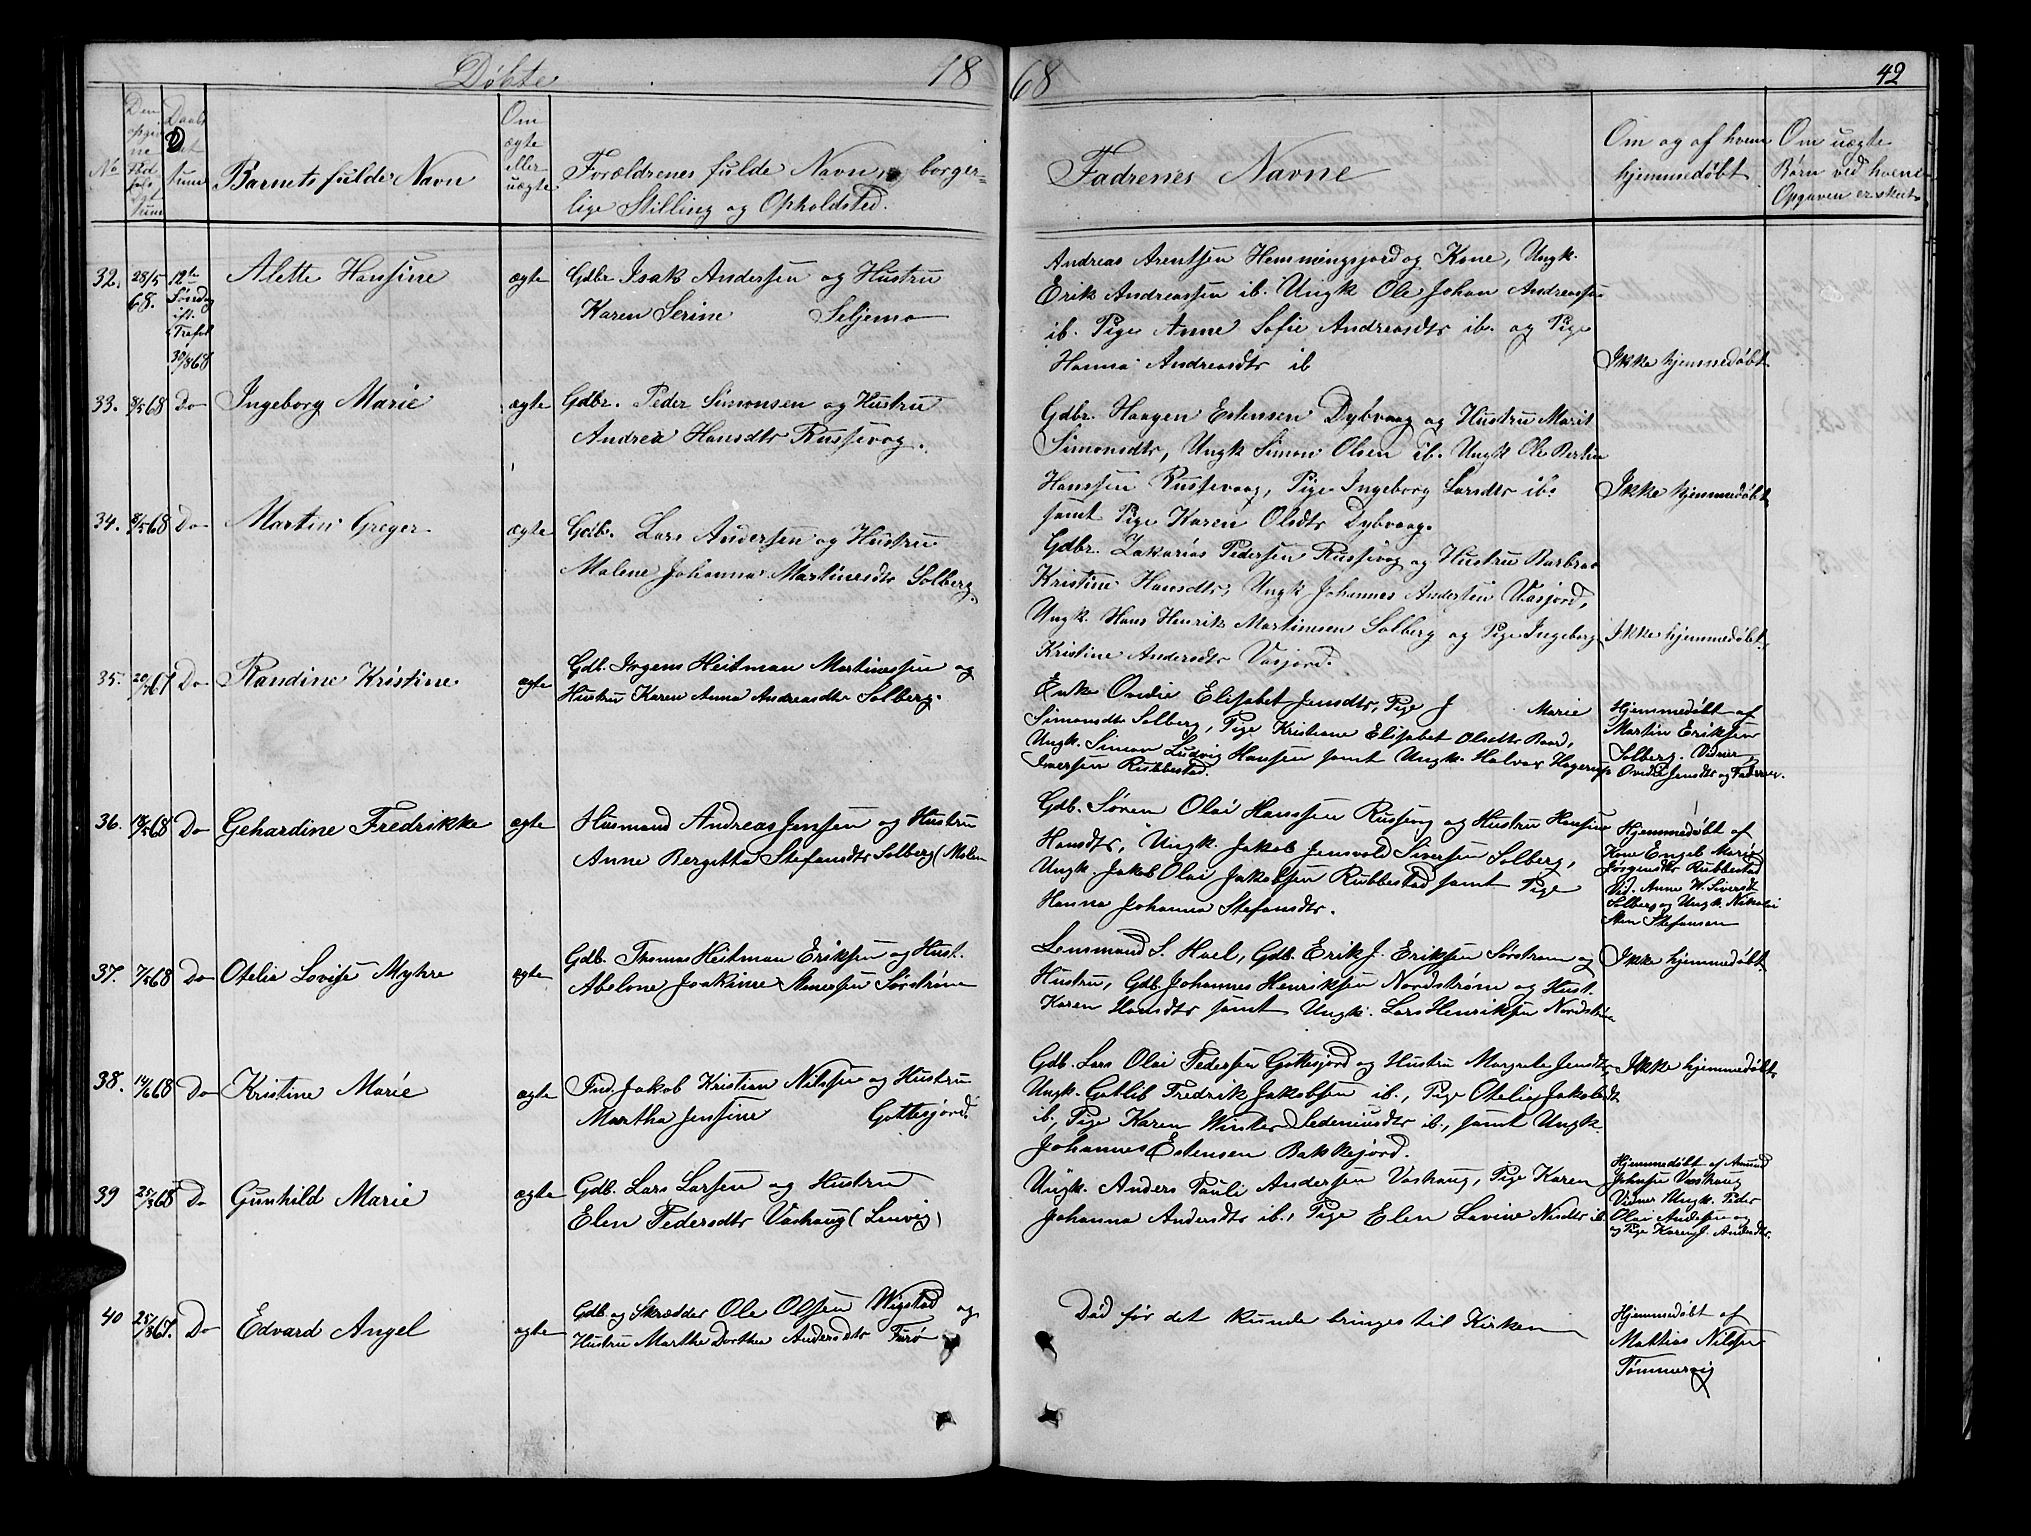 Døbte 18 68 42
No
Den opgivne Fødselsdatum
Daabsdatum
Barnets fulde Navn
Om ægte eller uægte
Forældrenes fulde Navn, borgerlige Stilling og Opholdsted.
Fadrenes Navne
Om og af hvem hjemmedøbt
Om uægte Børn ved hvem Opgaven er skeet
32. 28/5 68. 12te Søndag eft. Trefol. 30/8 68 Alette Hansine ægte Gdbr. Isak Andersen og Hustru
Karen Serine Seljemo
Andreas Arentsen Hemmingsjord og Kone, Ungk.
Erik Andreassen ib. Ungk Ole Johan Andreassen
ib. Pige Anne Sofie Andreasdtr ib. og Pige
Hanna Andreasdtr ib
Ikke hjemmedøbt
33. 8/5 68 Do Ingeborg Marie ægte Gdbr. Peder Simonsen og Hustru
Andrea Hansdtr Russevog.
Gdbr. Haagen Estensen Dybvaag og Hustru Marit
Simonsdtr, Ungk Simon Olsen ib. Ungk Ole Bertin
Hanssen Russevaag, Pige Ingeborg Larsdtr ib.
samt Pige Karen Olsdtr Dybvaag.
Ikke hjemmedøbt
34. 8/5 68 Do Martin Greger ægte Gdb. Lars Andersen og Hustru
Malene Johanna Martinesdtr Solberg.
Gdbr. Zakarias Pedersen Russevog og Hustru Barbra
Kristine Hansdtr, Ungk Johannes Andersen Vasjord,
Ungk. Hans Henrik Martinesen Solberg og Pige Ingeborg
Kristine Andersdtr Vasjord.
Ikke hjemmedøbt.
35. 67 Do Randine Kristine ægte Gdb. Jrgens Heitman Martinessen og
Hustru Karen Anna Andreasdtr Solberg.
Enke Ovidie Elisabet Jensdtr, Pige J Marie
Simonsdtr Solberg, Pige Kristiane Elisabet Olsdtr Baad,
Ungk. Simon Ludvig Hansen samt Ungk. Halvor Hagerup
Iversen Rubbestad.
Hjemmedøbt af
Martin Eriksen
Solberg. Vidner
Ovidia Jensdtr og Faderen.
36. 68 Do Gehardine Fredrikke ægte Husmand Andreas Jensen og Hustru
Anne Bergitha Stefansdtr Solberg (Malen
Gdb. Søren Olai Hanssen Russung og Hustru Hansine
Hansdtr, Ungk. Jakob Jensvold Siversen Solberg,
Ungk. Jakob Olai Jakobsen Rubbestad samt Pige
Hanna Johanna Stefansdtr.
Hjemmedøbt af
Kone Engel Marie
Jørgensdtr Rubbestad
Vid. Anne W. Siversdt
Solberg og Ungk. Nikolai
Sten Stefansen
37. 7/5 68 Do Otelia Lovise Myhre ægte Gdb. Thomas Heitman Eriksen og Hust.
Abelone Joakime Sørstrøm
Lensmand S. Hoel, Gdb. Erik J. Eriksen Sørstrøm og
Hustru, Gdb. Johannes Henriksen Nordstrøm og Hust.
Karen Hansdtr samt Ungk. Lars Henriksen Nordstrøm
Ikke hjemmedøbt
38. 14/6 68 Do Kristine Marie ægte Ind. Jakob Kristian Nilssen og Hustru
Martha Jensine Gottesjord
Gdb. Lars Olai Pedersen Gottesjord og Hustru Margrete Jensdtr,
Ungk. Gotlib Fredrik Jakobsen ib., Pige Otelia Jakobsdt
ib., Pige Karen Winter Sedeniusdtr ib., samt Ungk.
Johannes Estensen Bakkejord.
Ikke hjemmedøbt
39 25/3 68 Do Gunhild Marie ægte Gdb. Lars Larsen og Hustru
Elen Pedersdtr Vashaug (Lenvig)
Ungk. Anders Pauli Andersen Vashaug, Pige Karen
Johanna Andersdtr ib., Pige Elen Lavine Nisdtr ib.
Hjemmedøbt af Amund
Johnsen Vashaug
Vidner Ungk. Peder
Olai Andersen og
og Pige Karen J. Andersdtr.
40 25/8 67. Do Edvard Angel ægte Gdb. og Skrædder Ole Olssen Wigstad og
Hustru Marthe Dorthea Andersdtr
Død før det kunde bringes til Kirken
Hjemmedøbt af
Mattias Nilssen
Tømmervig